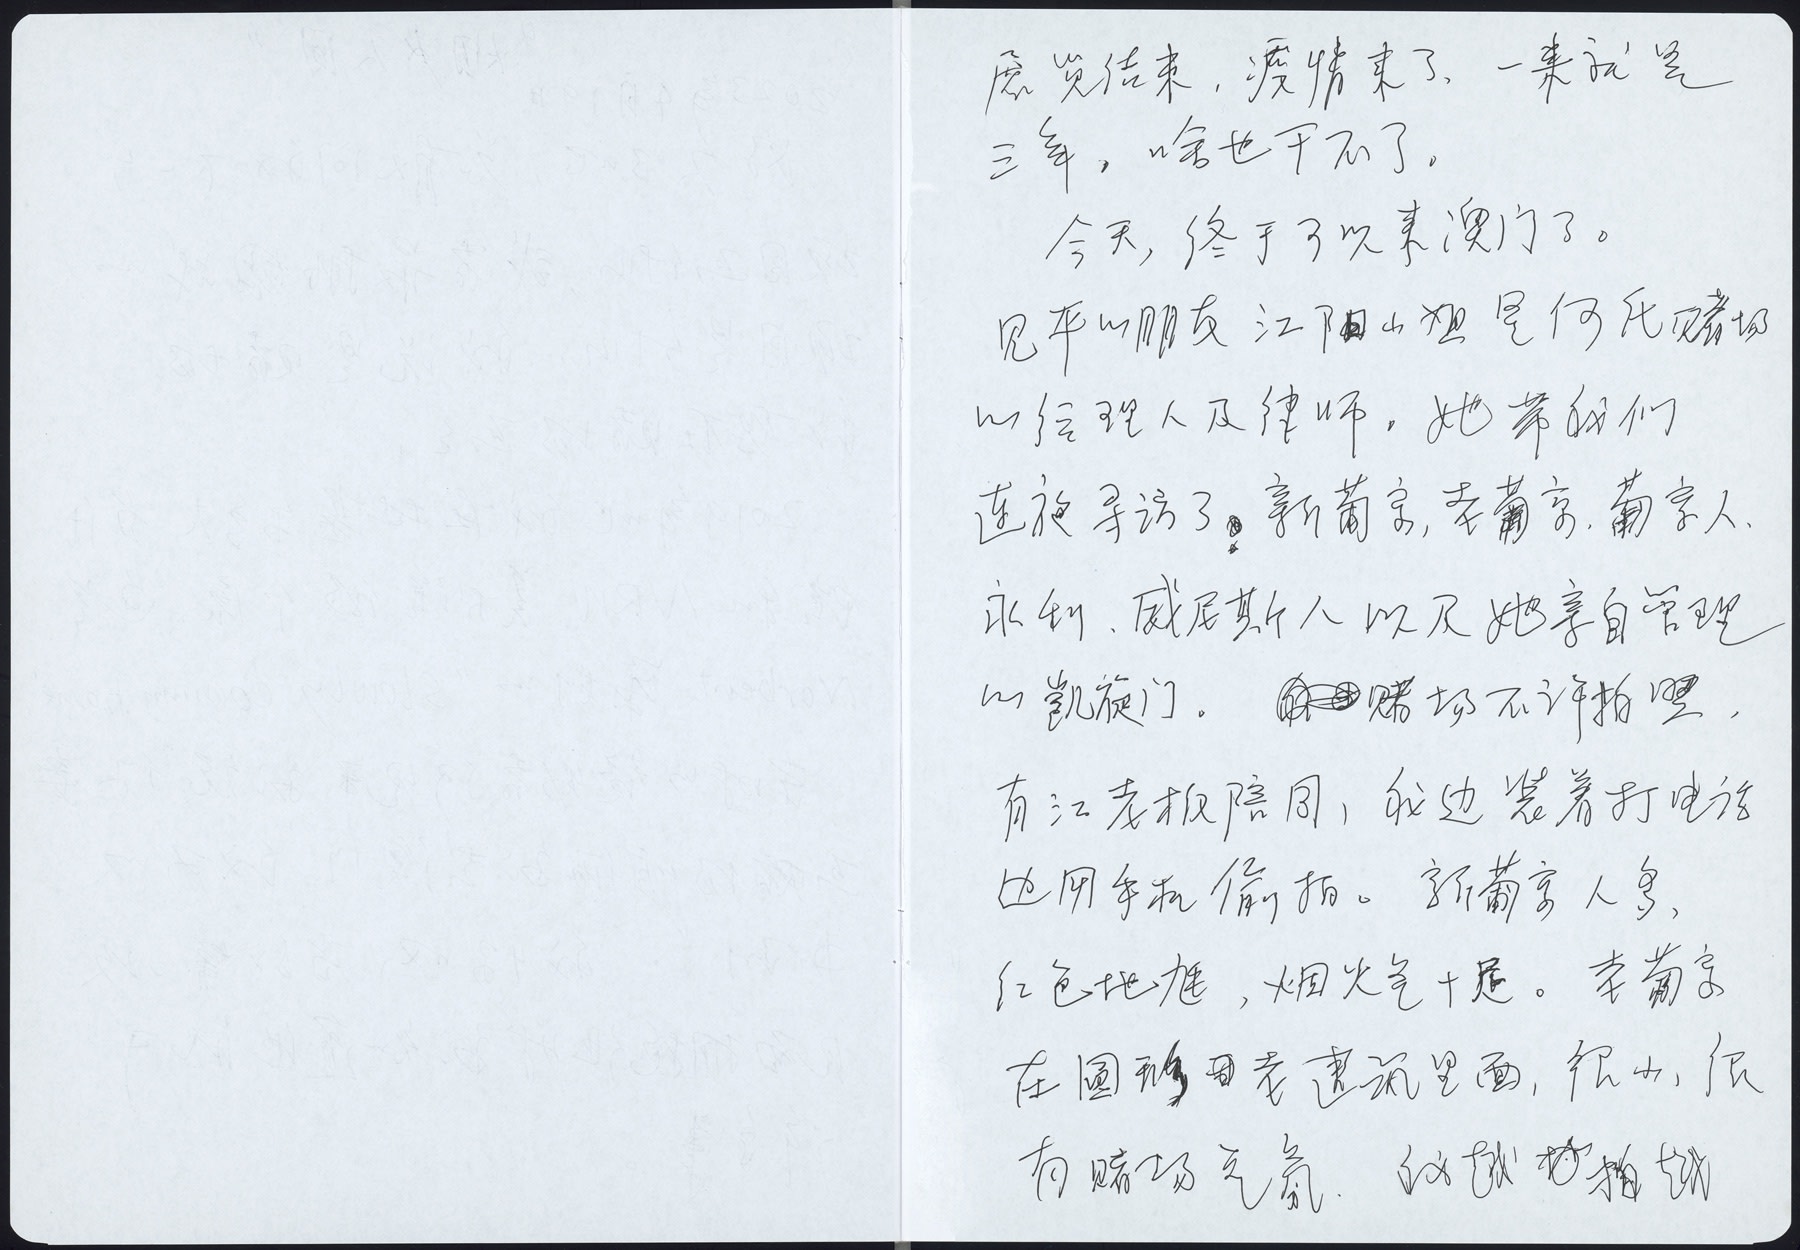 展览结束，疫情来了、一来就是
三年。啥也干不了。
今天，终于可以来澳门了。
见平的朋友江阳小姐是何氏赌场
的经理人及律师。她带我们
连夜寻访了 新葡京，老葡京、葡京人、
永利、威尼斯人以及她亲自管理
的凯旋门。 赌场不许拍照，
有江老板陪同，我边装着打电话
边用手机偷拍。新葡京人多，
红色地毯，烟火气十足。老葡京
在圆形 老建筑里面，很小，很
有赌场气氛. 我越 拍越